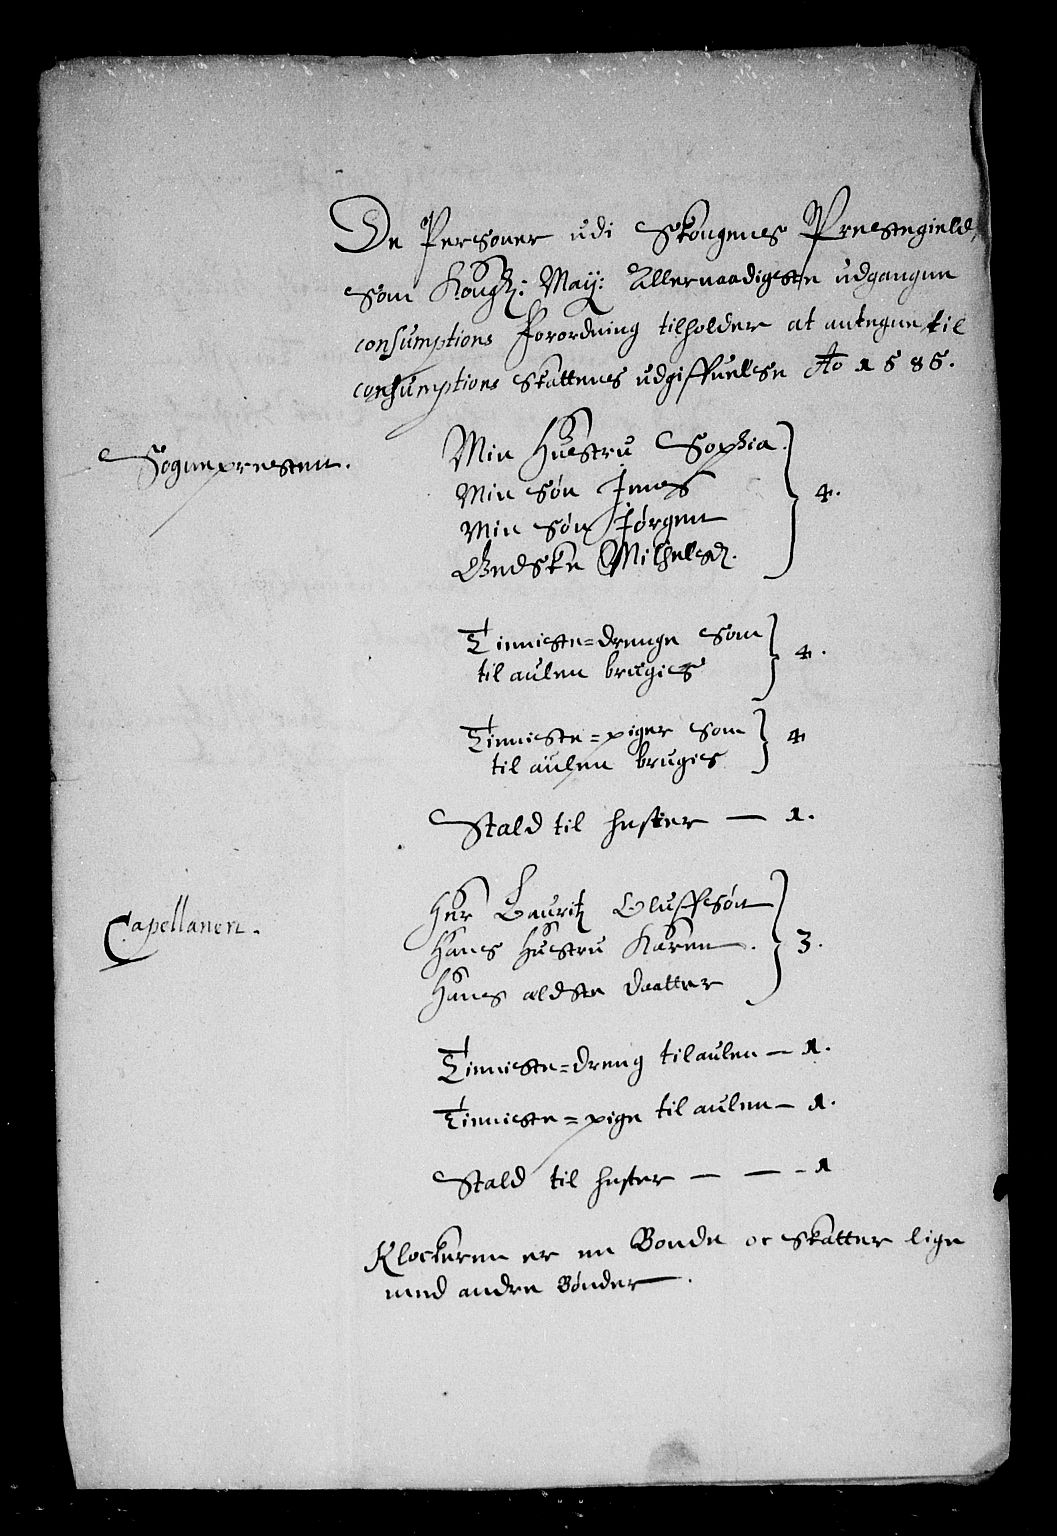 De Personer udi Skougnes Præstegield,
Som Kongl: May: Allernaadigste udgangne
consumptions Forordning tilholder at antegne til
consumptions Skattens udgiffuelse Ao 1686.
Sogneprestens.
Min Hustru Sophia.
Min Søn Jens
Min Søn Jørgen
Giedske
4.
Tienniste=drenge som
til aulen brugis
4.
Tienniste=piger som
til aulen brugis
4
Stald til hester — 1.
Capellanen.
Her Lauritz Oluffsøn
Hans Hustru Karen.
Hans ældste daatter
3.
Tienniste=dreng til aulen — 1.
Tienniste=pige til aulen — 1.
Stald til hester — — - 1
Klockeren er en Bonde oc skatter lige
med andre Bønder.